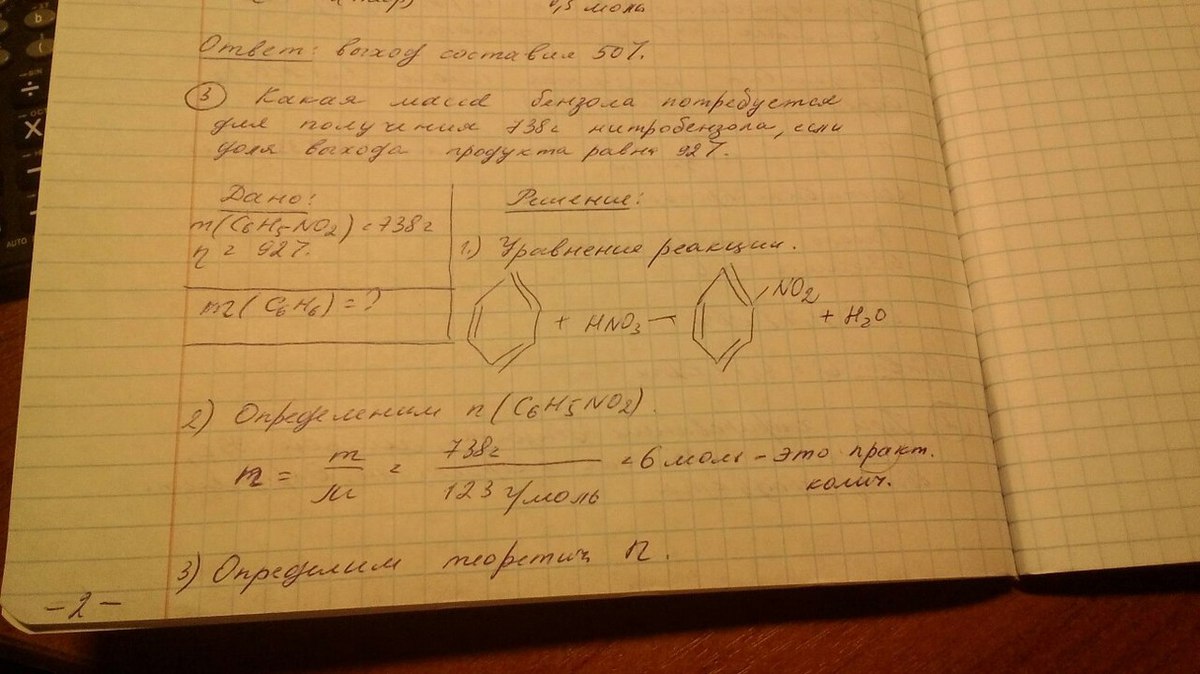 0,5 моль
Ответ: выход составил 50%.
3 Какая масса бензола потребуется
для получения 738г нитробензола, если
доля выхода продукта равна 92%.
Дано:
m(C6H5-NO2)=738г
η = 92%.
m(C6H6)=?
Решение:
1.) Уравнение реакции.
+ HNO3 → NO2 + H2O
2) Определеним n(C6H5NO2).
n = m/M = 738г/123 г/моль = 6 моль – это практ.
колич.
3) Определим теоретич n.
-2-